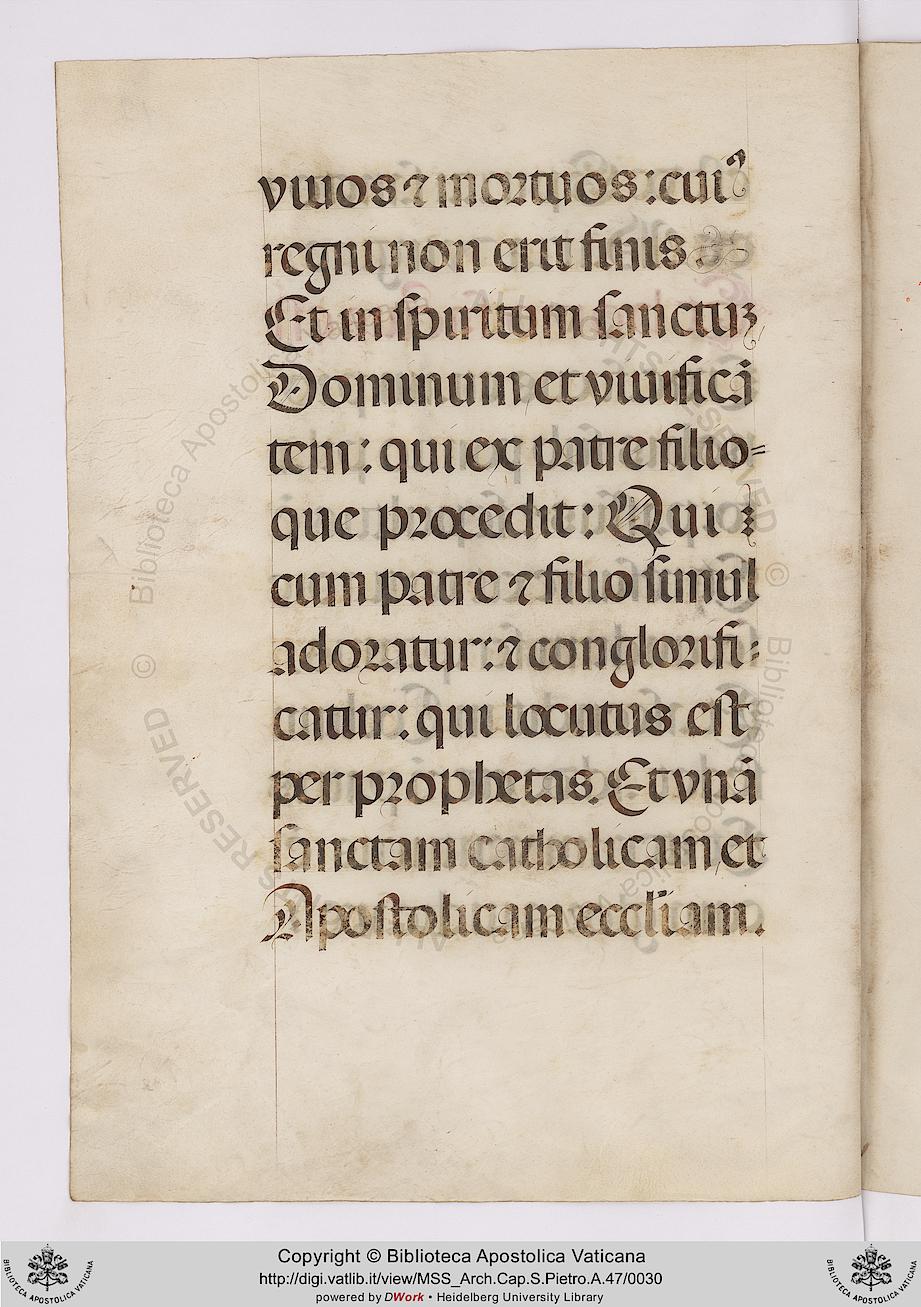 viuos ⁊ mortuos : cui⁹
regni non erit finis
Et in spiritum sanctuʒ
Dominum et viuificā
tem : qui ex patre filio=
que procedit : Qui
cum patre ⁊ filio simul
adoratur : ⁊ conglorifi=
catur : qui locutus est
per prophetas. Et vnā
sanctam catholicam et
Apostolicam eccl̄iam.
© Biblioteca Apostolica
RESERVED
Copyright © Biblioteca Apostolica Vaticana
http://digi.vatlib.it/view/MSS_Arch.Cap.S.Pietro.A.47/0030
powered by DWork • Heidelberg University Library
BIBLIOTECA APOSTOLICA VATICANA
BIBLIOTECA APOSTOLICA VATICANA